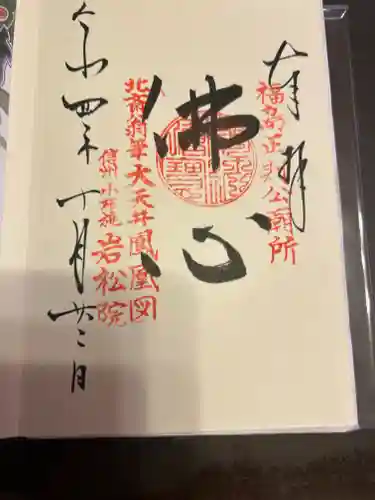 奉拝
福島正則公廟所
佛心
北斎翁筆大天井鳳凰図
信州小布施
岩松院
令和四年十月廿二日